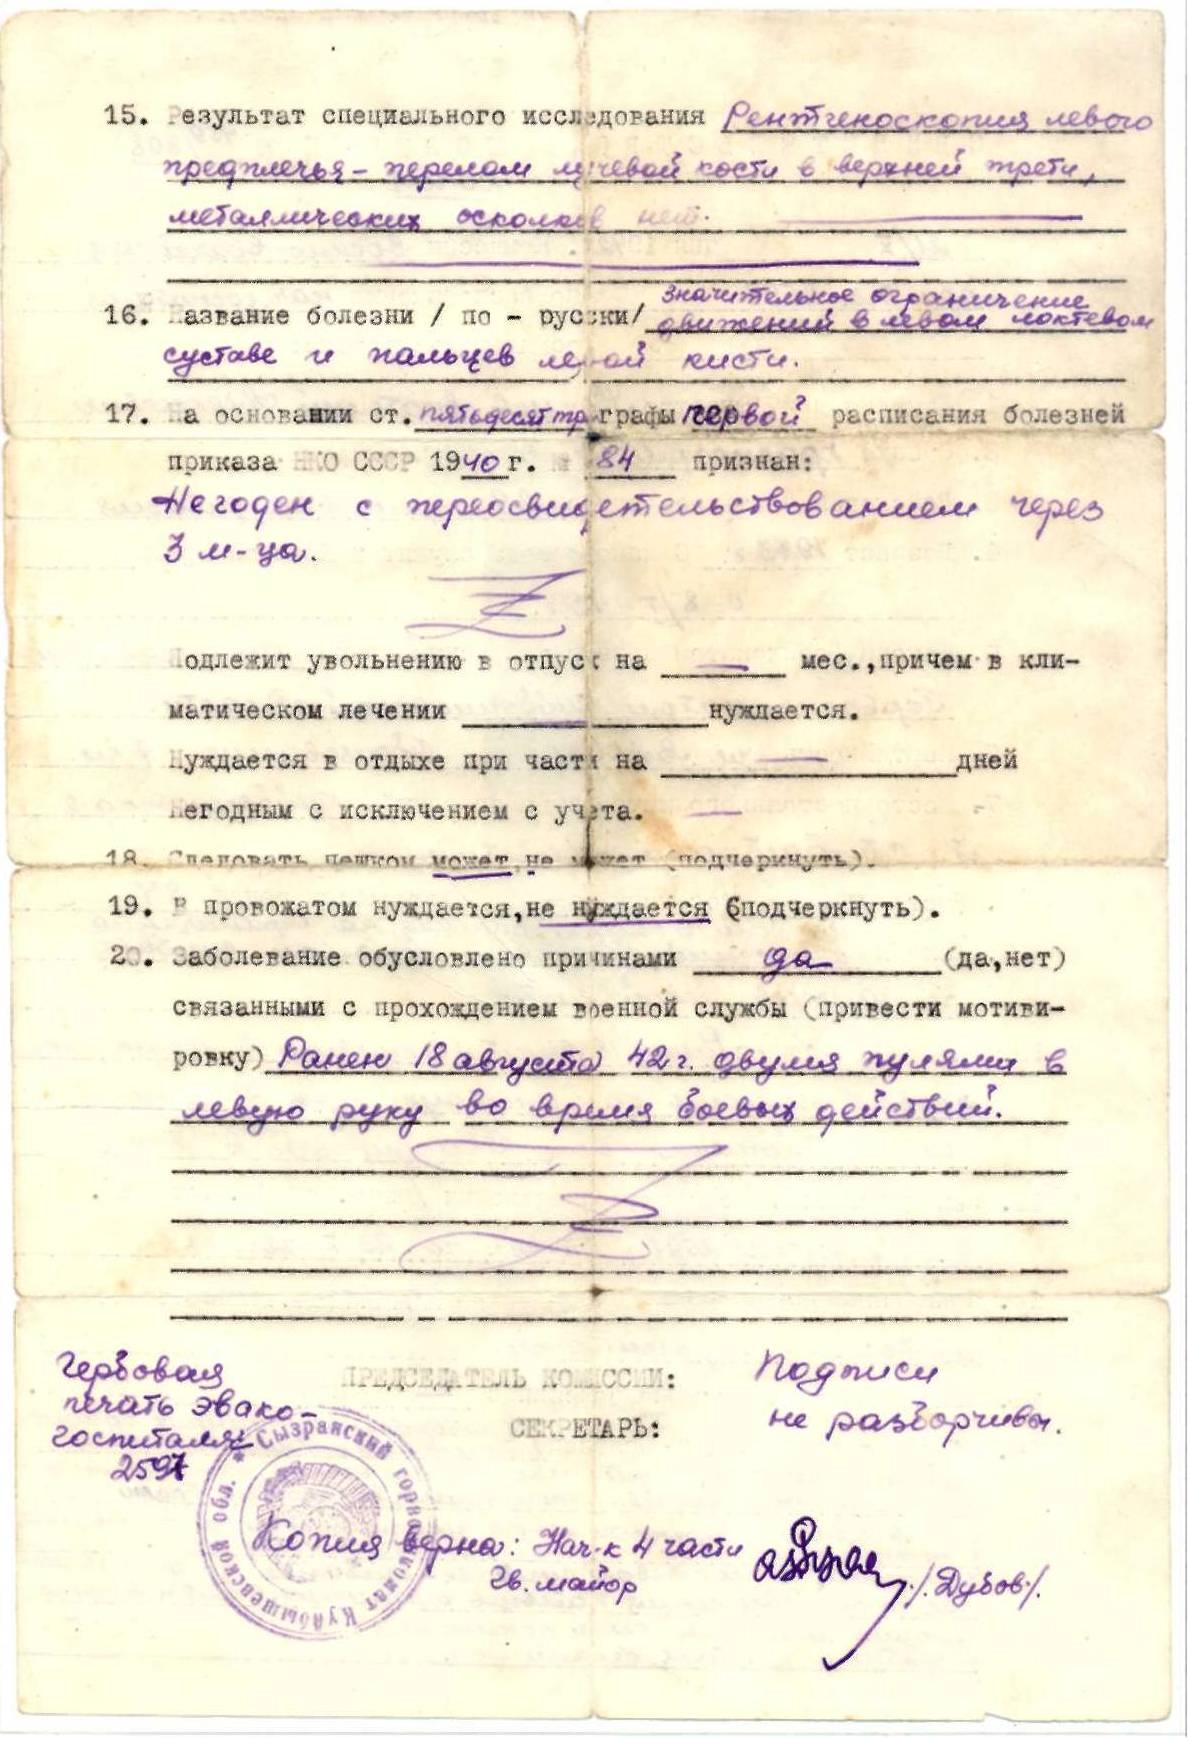 15. Результат специального исследования Рентгеноскопия левого
предплечья – перелом лучевой кости в верхней трети,
металлических осколков нет.
16. Название болезни / по - русски/ значительное ограничение
движений в левом локтевом
суставе и пальцев левой кисти.
17. На основании ст. пятьдесят тр графы первой расписания болезней
приказа НКО СССР 1940 г. № 84 признан:
Не годен с переосвидетельствованием через
3 м-ца.
Подлежит увольнению в отпуск на мес., причем в кли-
матическом лечении нуждается.
Нуждается в отдыхе при части на дней
Негодным с исключением с учета. —
18. Следовать пешком может, не может (подчеркнуть).
19. В провожатом нуждается, не нуждается (подчеркнуть).
20. Заболевание обусловлено причинами да (да,нет)
связанными с прохождением военной службы (привести мотиви-
ровку) Ранен 18 августа 42 г. двумя пулями в
левую руку во время боевых действий.
Гербовая
печать эвако-
госпиталя
2597
ПРЕДСЕДАТЕЛЬ КОМИССИИ: Подписи
СЕКРЕТАРЬ: не разборчивы.
* Сызранский горвоенкомат Куйбышевской обл.
Копия верна: Нач-к 4 части
Гв. майор /Дубов/.